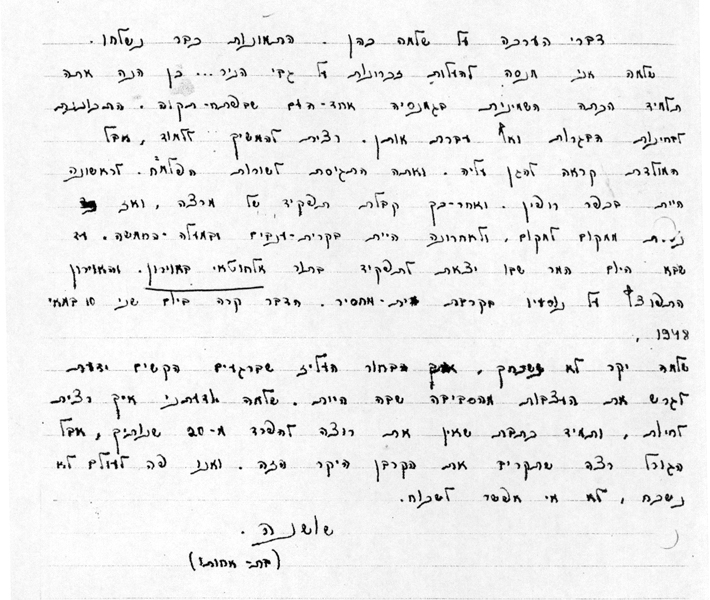 דברי הערכה על שלמה כהן. התמונות כבר נשלחו.
שלמה אני מנסה להעלות זכרונות על גבי הניר... כן הנה אתה
תלמיד הכתה השמינית בגמנסיה אחד-העם שבפתח-תקוה. התכוננת
לבחינות הבגרות ואף עברת אותן. רצית להמשיך ללמוד, אבל
המולדת קראה להגן עליה. ואתה התגיסת לשורות הפלמ"ח. לראשונה
היית בכפר רופין. ואחר-כך קבלת תפקיד של מרצה, ואז
ממקום למקום, ולאחרונה היית בקרית-ענבים ובמעלה-החמשה. עד
שבא היום המר שבו יצאת לתפקיד בתור אלחוטאי באוירון. והאוירון
התפוצץ על נוסעיו בקרבת בית-מחסיר. הדבר קרה ביום שני 10 במאי
1948.
שלמה יקר לא נשכחך, הבחור העליז שברגעים הקשים ידעת
לגרש את העצבות מהסביבה שבה היות. שלמה ידעתני איך רצית
לחיות, ותמיד כתבת שאין את רוצה להפרד מ-20 שנותיך, אבל
הגורל רצה שתקריב את הקרבן היקר הזה. ואנו פה לעולם לא
נשכח, לא אי אפשר לשכוח.
שושנה.
(בת-אחותו)